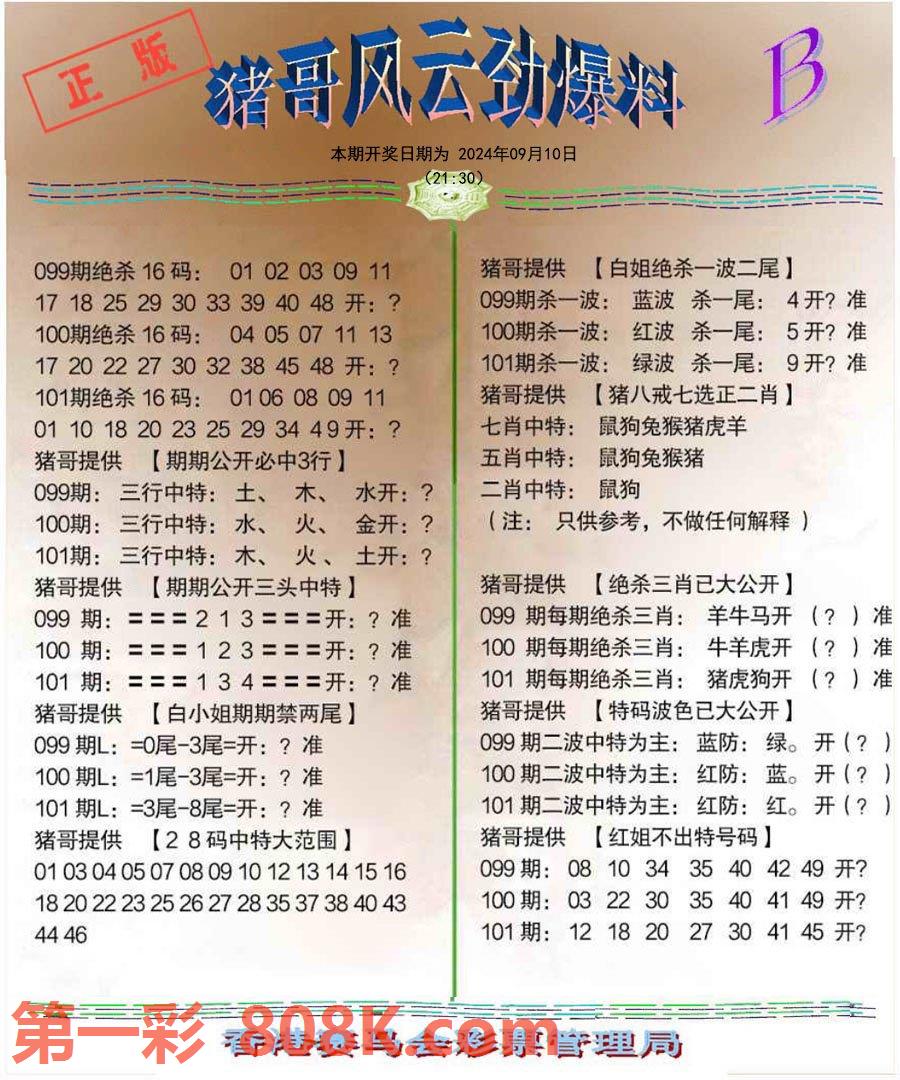 正版
猪哥风云劲爆料
B
本期开奖日期为 2024年09月10日
(21:30)
099期绝杀16码： 01 02 03 09 11
17 18 25 29 30 33 39 40 48 开：?
100期绝杀16码： 04 05 07 11 13
17 20 22 27 30 32 38 45 48 开：?
101期绝杀16码： 01 06 08 09 11
01 10 18 20 23 25 29 34 4 9 开：?
猪哥提供 【期期公开必中3行】
099期：三行中特：土、 木、 水开：?
100期：三行中特：水、 火、 金开：?
101期：三行中特：木、 火、 土开：?
猪哥提供 【期期公开三头中特】
099 期：=== 2 1 3 ===开：? 准
100 期：=== 1 2 3 ===开：? 准
101 期：=== 1 3 4 ===开：? 准
猪哥提供 【白小姐期期禁两尾】
099期L：=0尾-3尾=开：? 准
100期L：=1尾-3尾=开：? 准
101期L：=3尾-8尾=开：? 准
猪哥提供 【2 8码中特大范围】
01 03 04 05 07 08 09 10 12 13 14 15 16
18 20 22 23 25 26 27 28 35 37 38 40 43
44 46
猪哥提供 【白姐绝杀一波二尾】
099期杀一波： 蓝波 杀一尾： 4开? 准
100期杀一波： 红波 杀一尾： 5开? 准
101期杀一波： 绿波 杀一尾： 9开? 准
猪哥提供 【猪八戒七选正二肖】
七肖中特： 鼠狗兔猴猪虎羊
五肖中特： 鼠狗兔猴猪
二肖中特： 鼠狗
（注： 只供参考，不做任何解释）
猪哥提供 【绝杀三肖已大公开】
099 期每期绝杀三肖： 羊牛马开 (？)准
100 期每期绝杀三肖： 牛羊虎开 (？)准
101 期每期绝杀三肖： 猪虎狗开 (？)准
猪哥提供 【特码波色已大公开】
099 期二波中特为主：蓝防：绿。 开(？)
100 期二波中特为主：红防：蓝。 开(？)
101 期二波中特为主：红防：红。 开(？)
猪哥提供 【红姐不出特号码】
099 期： 08 10 34 35 40 42 49 开?
100 期： 03 22 30 35 40 41 49 开?
101 期： 12 18 20 27 30 41 45 开?
第一彩 808K.com
香港赛马会彩票管理局